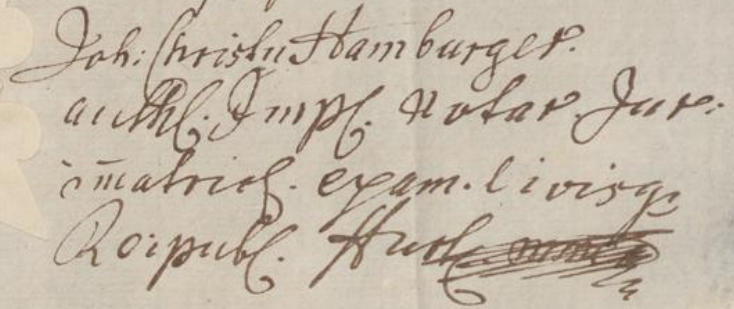 Joh: Christn Hamburger.
authl. Impl. Notar. Jur:
im̄atricl. exam. Civisq;
Reipubl. Huel.